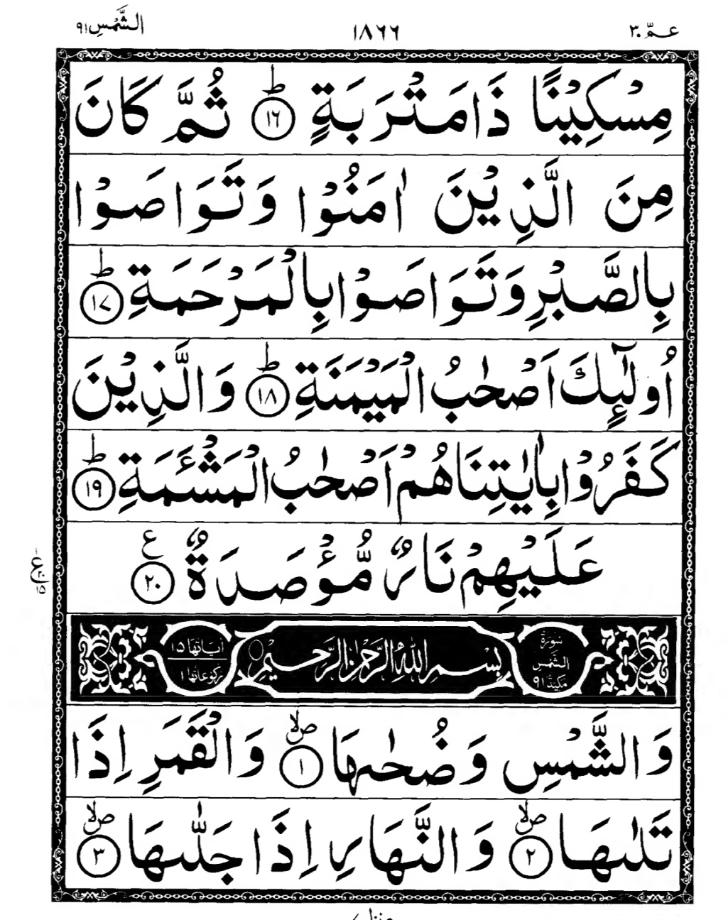 عـمّ ۳۰
۱۸۶۶
الشَّمْس ۹۱
مِسْكِيْنًا ذَا مَتْرَبَةٍ ؕ ﴿۱۶﴾ ثُمَّ كَانَ
مِنَ الَّذِيْنَ اٰمَنُوْا وَتَوَاصَوْا
بِالصَّبْرِ وَتَوَاصَوْا بِالْمَرْحَمَةِ ؕ ﴿۱۷﴾
اُولٰٓئِكَ اَصْحٰبُ الْمَيْمَنَةِ ؕ ﴿۱۸﴾ وَالَّذِيْنَ
كَفَرُوْا بِاٰيٰتِنَا هُمْ اَصْحٰبُ الْمَشْـَٔمَةِ ؕ ﴿۱۹﴾
عَلَيْهِمْ نَارٌ مُّؤْصَدَةٌ ﴿۲۰﴾ ع
سُوْرَةُ الشَّمْسِ مَكِّيَّةٌ ۹۱
بِسْمِ اللّٰهِ الرَّحْمٰنِ الرَّحِيْمِ
اٰيَاتُهَا ۱۵
رُكُوْعَاتُهَا ۱
وَالشَّمْسِ وَضُحٰىهَا ۪ۙ ﴿۱﴾ وَالْقَمَرِ اِذَا
تَلٰىهَا ۪ۙ ﴿۲﴾ وَالنَّهَارِ اِذَا جَلّٰىهَا ۪ۙ ﴿۳﴾
منزل ۷